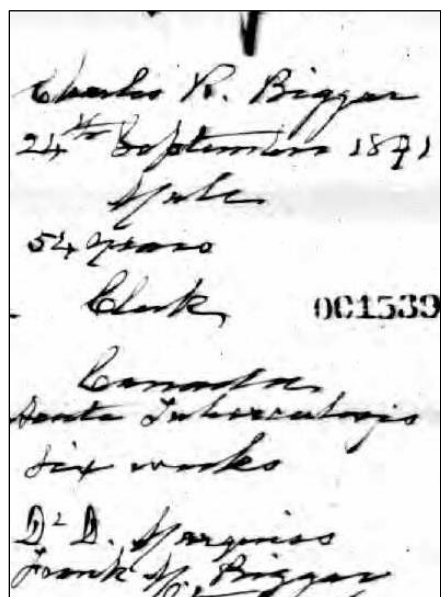 Charles R. Biggar
24th September 1871
Male
54 years
Clerk 001539
Canada
Acute Tuberculosis
six weeks
Dr D.
Frank M. Biggar